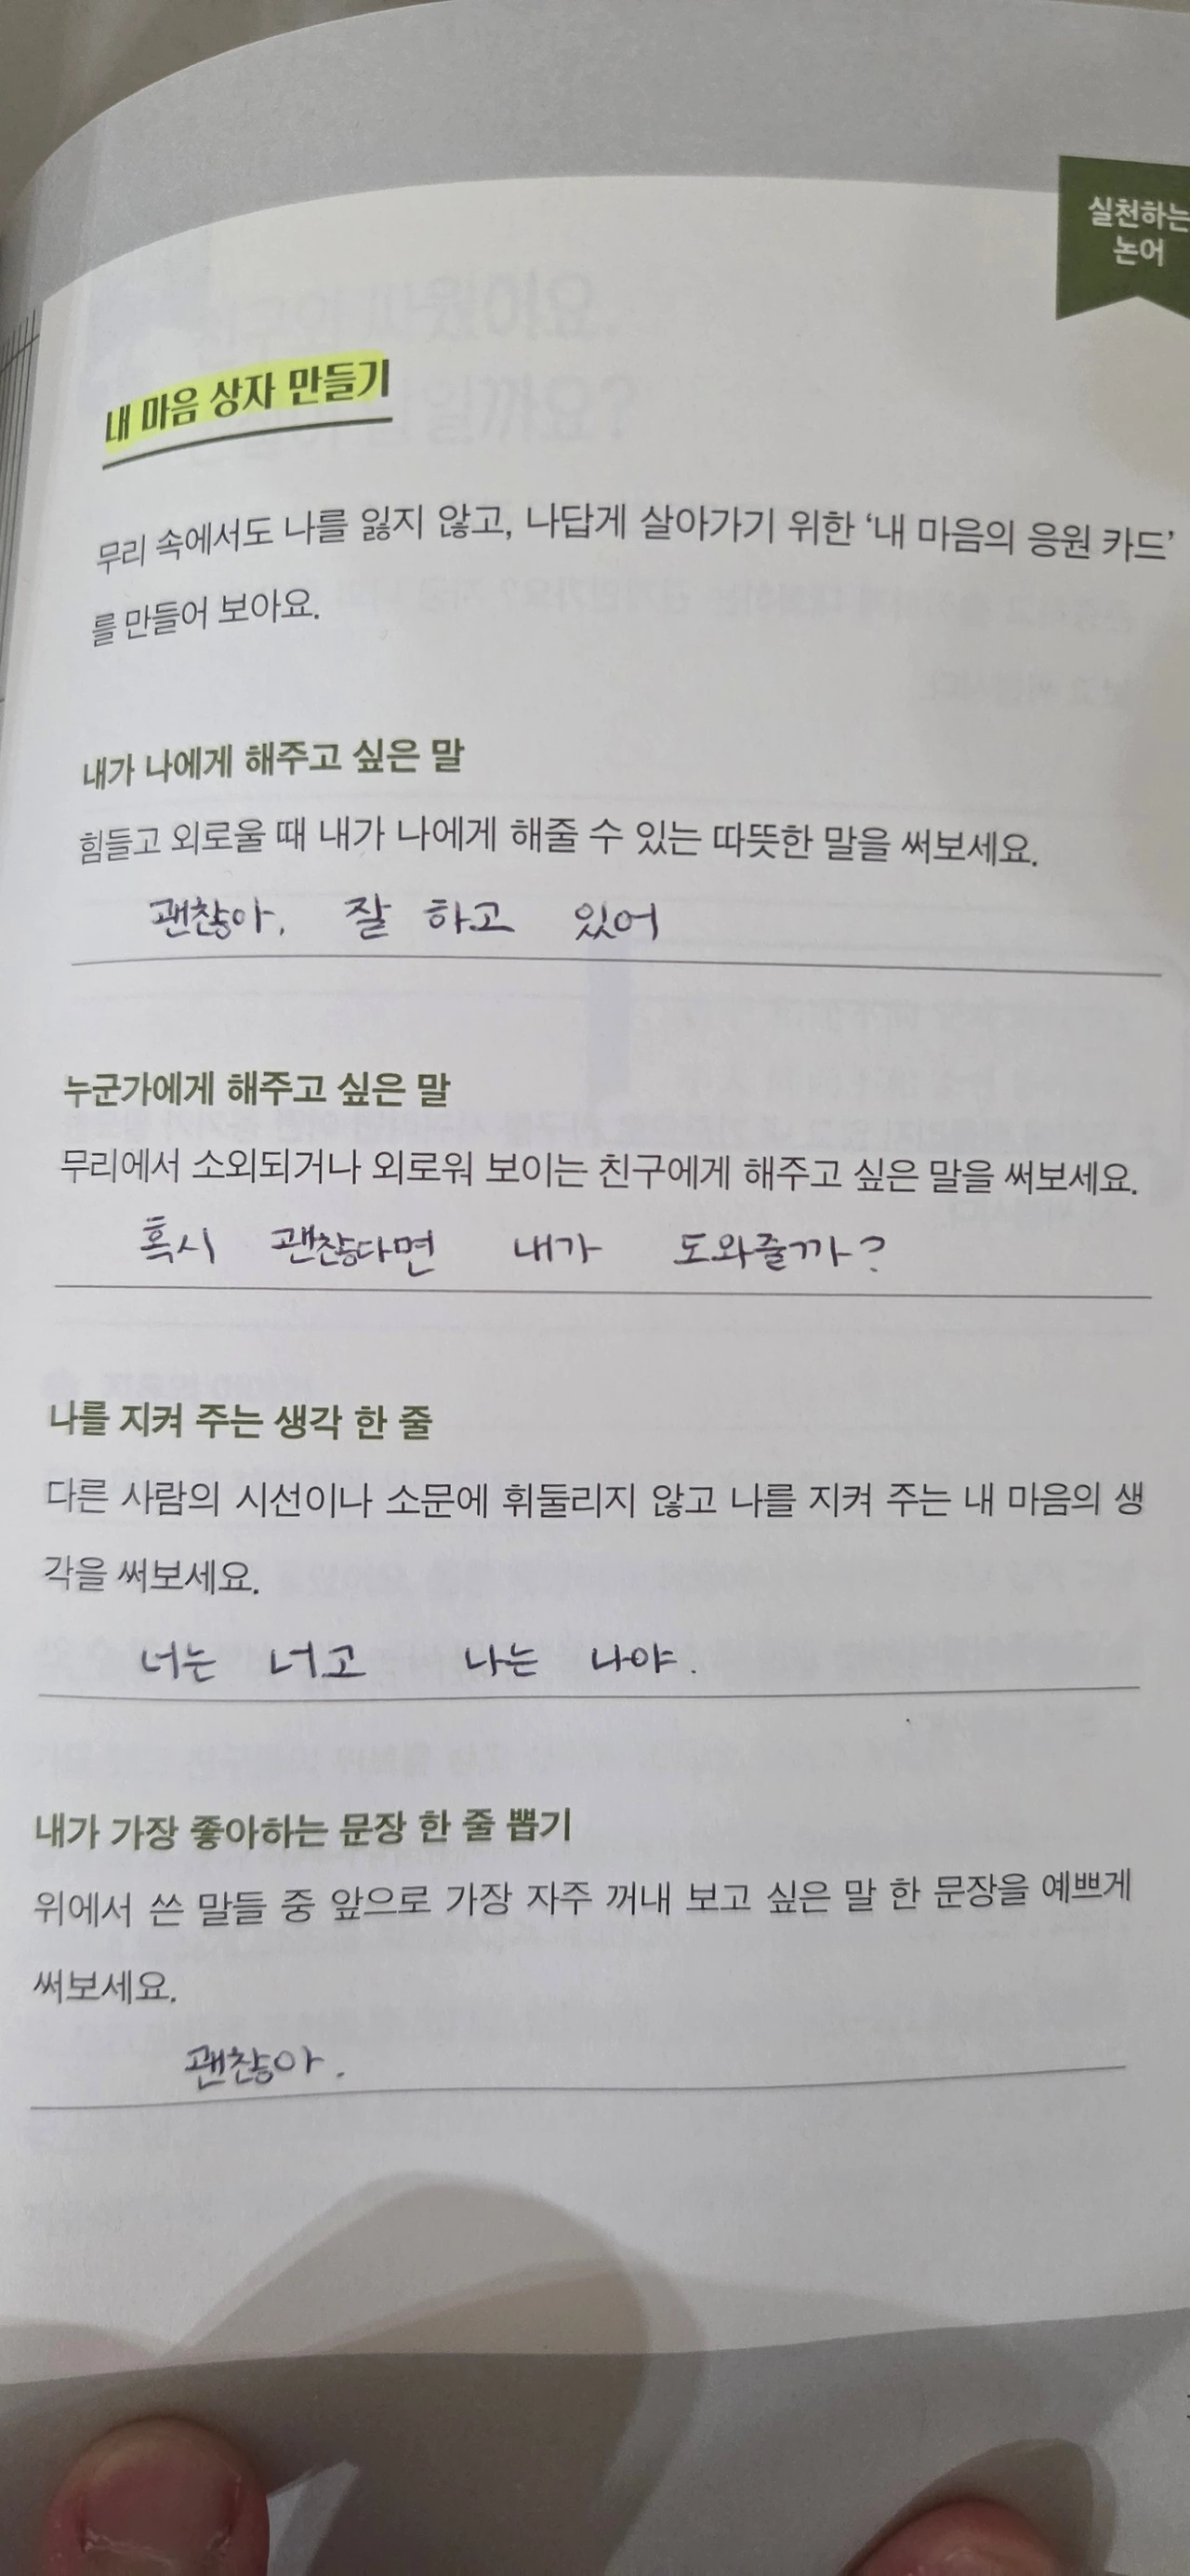 실천하는
논어
내 마음 상자 만들기
무리 속에서도 나를 잃지 않고, 나답게 살아가기 위한 ‘내 마음의 응원 카드’
를 만들어 보아요.
내가 나에게 해주고 싶은 말
힘들고 외로울 때 내가 나에게 해줄 수 있는 따뜻한 말을 써보세요.
괜찮아, 잘 하고 있어
누군가에게 해주고 싶은 말
무리에서 소외되거나 외로워 보이는 친구에게 해주고 싶은 말을 써보세요.
혹시 괜찮다면 내가 도와줄까?
나를 지켜 주는 생각 한 줄
다른 사람의 시선이나 소문에 휘둘리지 않고 나를 지켜 주는 내 마음의 생
각을 써보세요.
너는 너고 나는 나야.
내가 가장 좋아하는 문장 한 줄 뽑기
위에서 쓴 말들 중 앞으로 가장 자주 꺼내 보고 싶은 말 한 문장을 예쁘게
써보세요.
괜찮아.